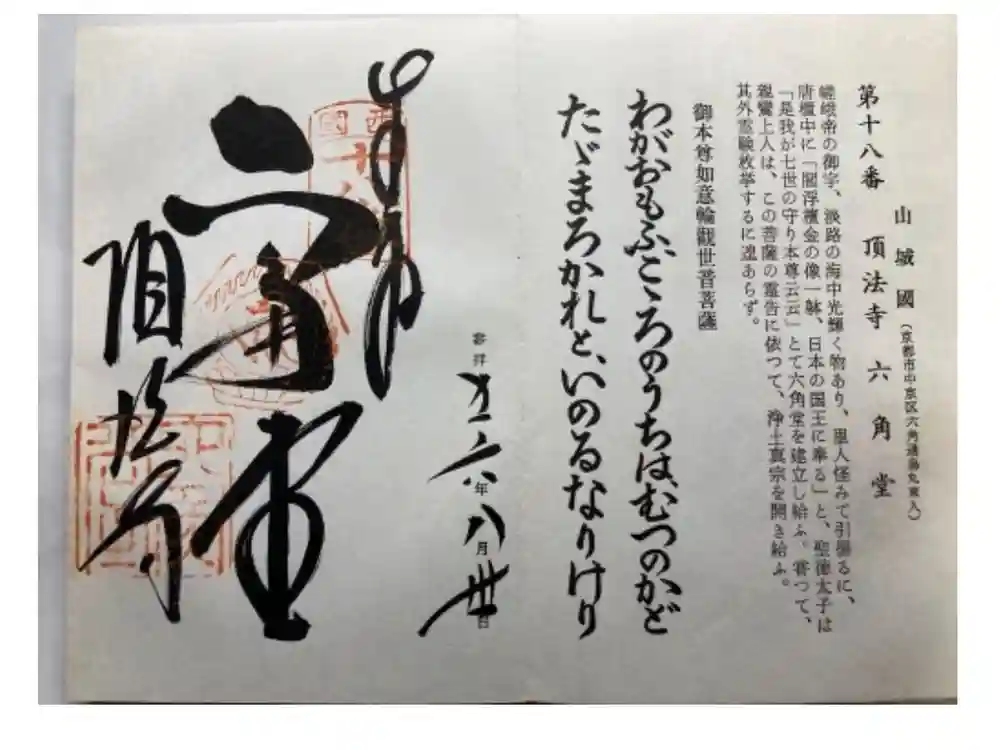 山城國(京都市中京区六角通烏丸東入)
第十八番 頂法寺 六角堂
嵯峨帝の御宇、淡路の海中光輝く物あり、里人怪みて引揚るに、
唐櫃中に「閻浮檀金の像一躰、日本の国王に奉る」と、聖徳太子は
「是我が七世の守り本尊云云」とて六角堂を建立し給ふ。嘗つて、
親鸞上人は、この菩薩の霊告に依つて、浄土真宗を開き給ふ。
其外霊験枚挙するに遑あらず。
御本尊如意輪觀世音菩薩
わがおもふこゝろのうちは、むつのかど
たゞまろかれと、いのるなりけり
參拝 年八月卅日
奉拝
六角堂
頂法寺